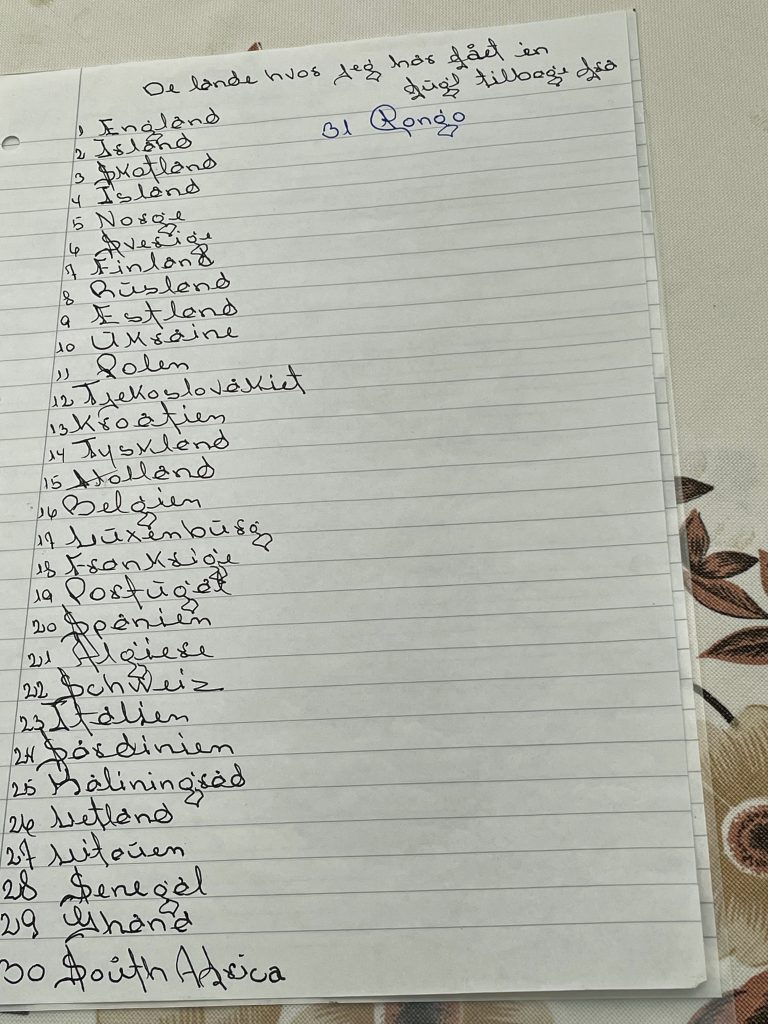 De lande hvor jeg har fået en
fugl tilbage fra
1 England
2 Island
3 Skotland
4 Island
5 Norge
6 Sverige
7 Finland
8 Rusland
9 Estland
10 Ukraine
11 Polen
12 Tjekoslovakiet
13 Kroatien
14 Tyskland
15 Holland
16 Belgien
17 Luxenburg
18 Frankrige
19 Portugal
20 Spanien
21 Algiere
22 Schweiz
23 Italien
24 Sardinien
25 Kaliningrad
26 Letland
27 Litauen
28 Senegal
29 Ghana
30 South Africa
31 Kongo